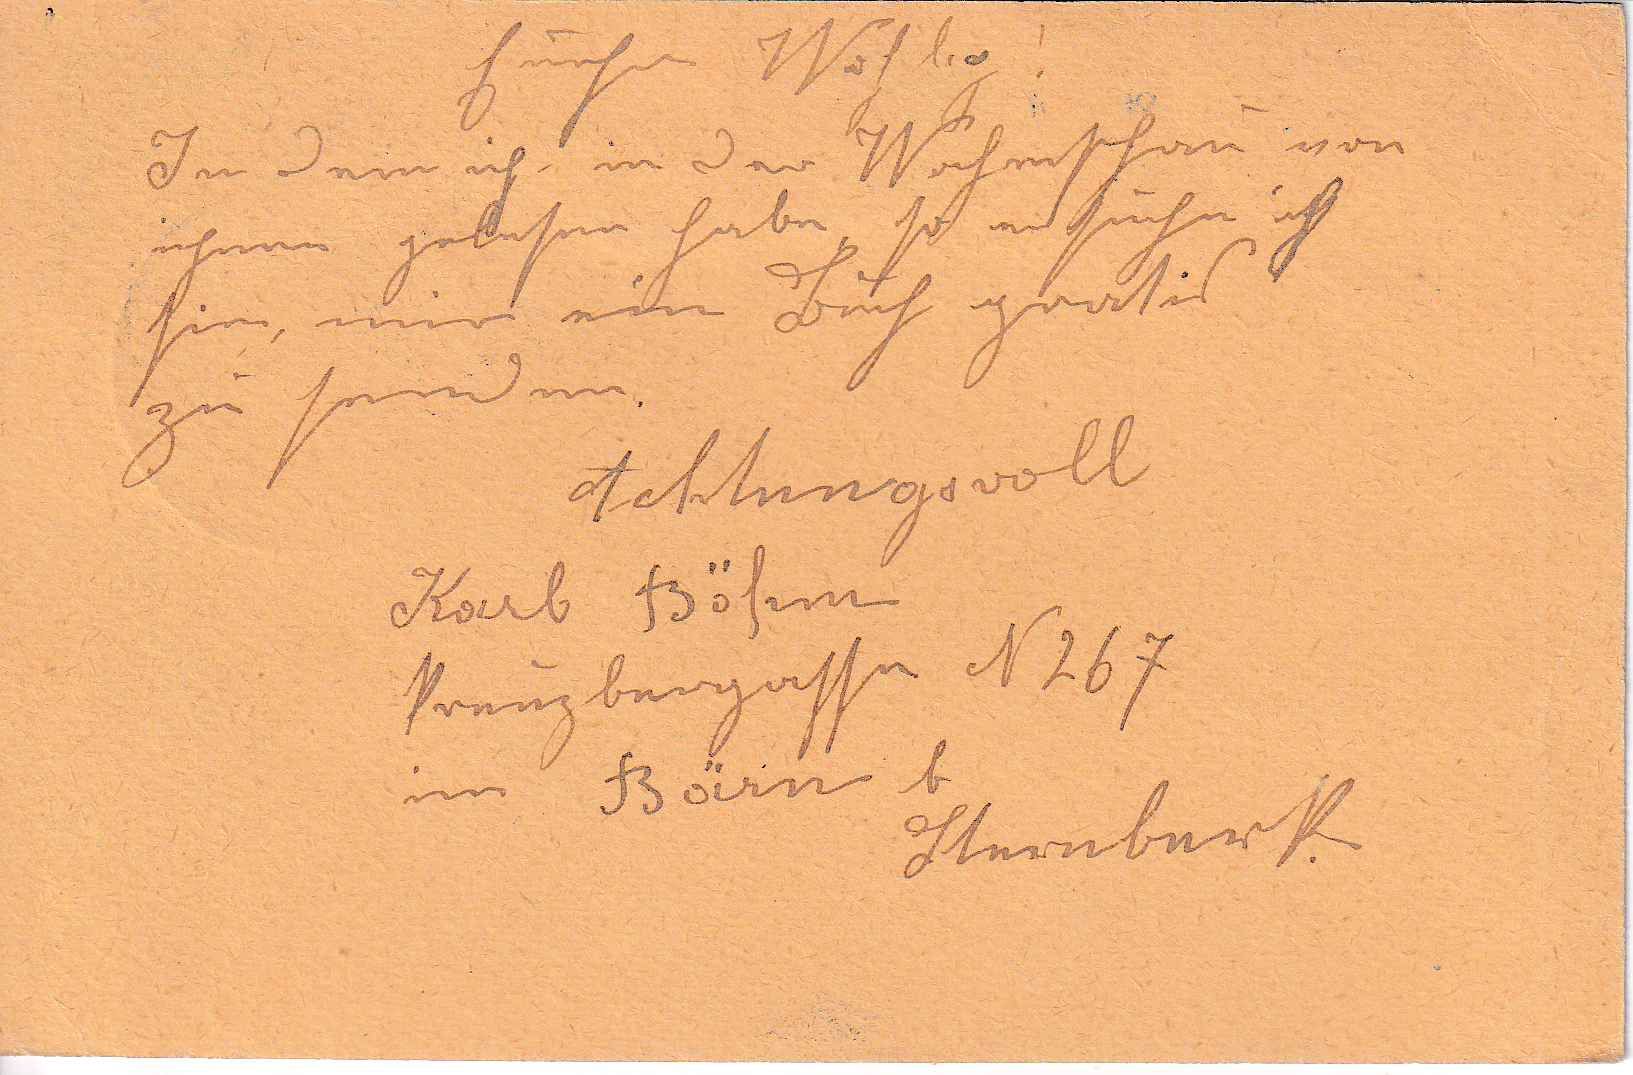 Euche Wohlg!
In dem ich in der Wochenschau von
ihnen gelesen habe, so ersuche ich
sie, mir ein Buch gratis
zu senden.
Achtungsvoll
Karl Böhm
Kreuzbergasse N 267
in Bärn b
Sternberk.